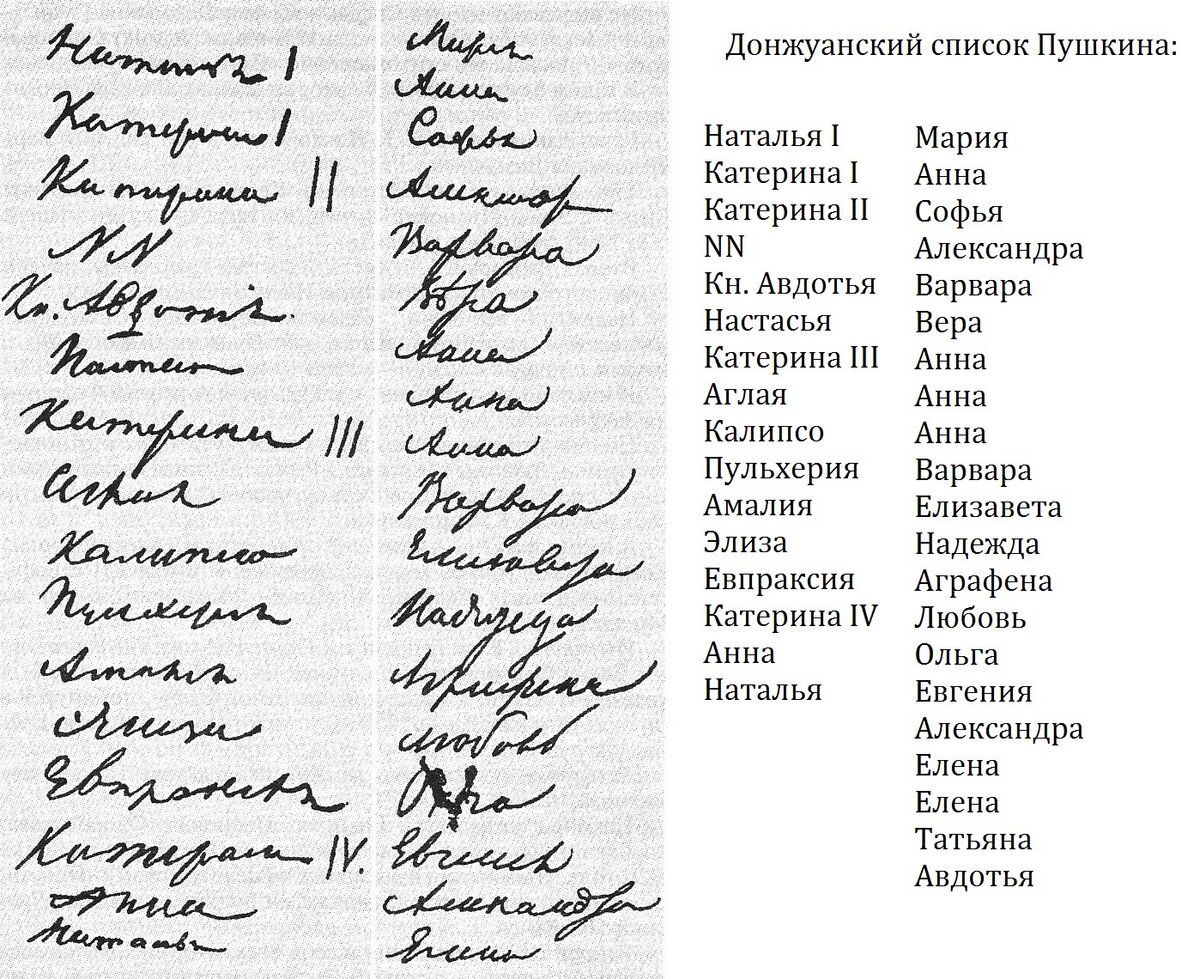 Наталья I
Катерина I
Катерина II
NN
Кн. Авдотья.
Настасья
Катерина III
Аглая
Калипсо
Пульхерия
Амалия
Элиза
Евпраксия
Катерина IV.
Анна
Наталья
Мария
Анна
Софья
Александр
Варвара
Вера
Анна
Анна
Анна
Варвара
Елизавета
Надежда
Аграфена
Любовь
Ольга
Евгения
Александра
Елена
Донжуанский список Пушкина:
Наталья I
Катерина I
Катерина II
NN
Кн. Авдотья
Настасья
Катерина III
Аглая
Калипсо
Пульхерия
Амалия
Элиза
Евпраксия
Катерина IV
Анна
Наталья
Мария
Анна
Софья
Александра
Варвара
Вера
Анна
Анна
Анна
Варвара
Елизавета
Надежда
Аграфена
Любовь
Ольга
Евгения
Александра
Елена
Елена
Татьяна
Авдотья